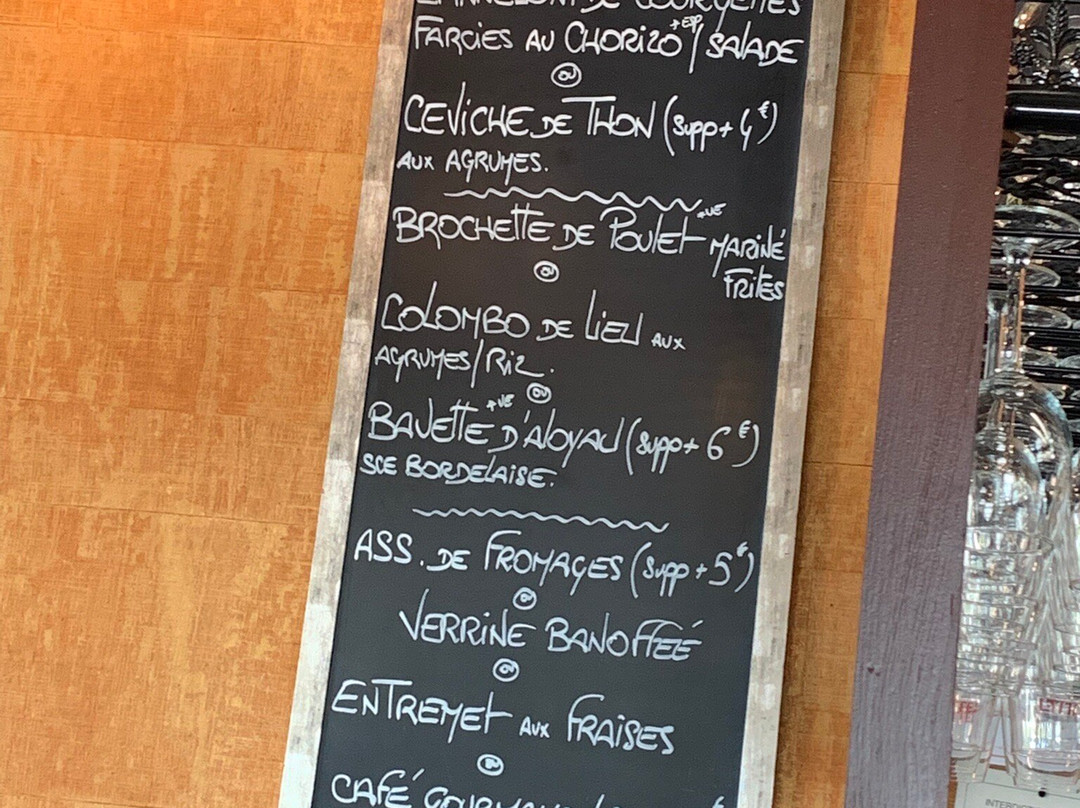 DE COURGETTES
FARCIES AU CHORIZO *ESP / SALADE
OU
CEVICHE DE THON (Supp + 4€)
AUX AGRUMES.
BROCHETTE DE POULET *UE MARINÉ
FRITES
OU
COLOMBO DE LIEU AUX
AGRUMES / RIZ.
OU
BAVETTE *UE D'ALOYAU (Supp + 6€)
SCE BORDELAISE.
ASS. DE FROMAGES (Supp + 5€)
OU
VERRINE BANOFFEÉ
OU
ENTREMET AUX FRAISES
OU
CAFÉ